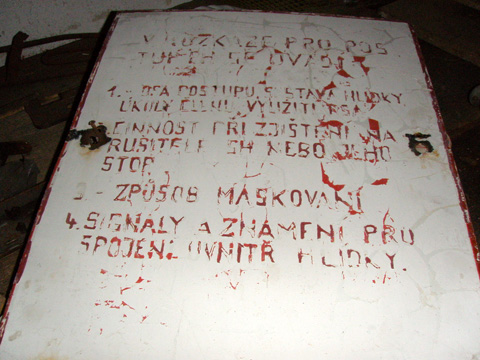 V ROZKAZE PRO POS
TUPEM SE UVÁDÍ
1. - OSA POSTUPU, SESTAVA HLÍDKY,
ÚKOLY VYUŽITÍ
ČINNOST PŘI ZJIŠTĚNÍ NA
RUŠITELE SH NEBO JEHO
STOP
3 - ZPŮSOB MASKOVÁNÍ
4. SIGNÁLY A ZNAMENÍ PRO
SPOJENÍ UVNITŘ HLÍDKY.